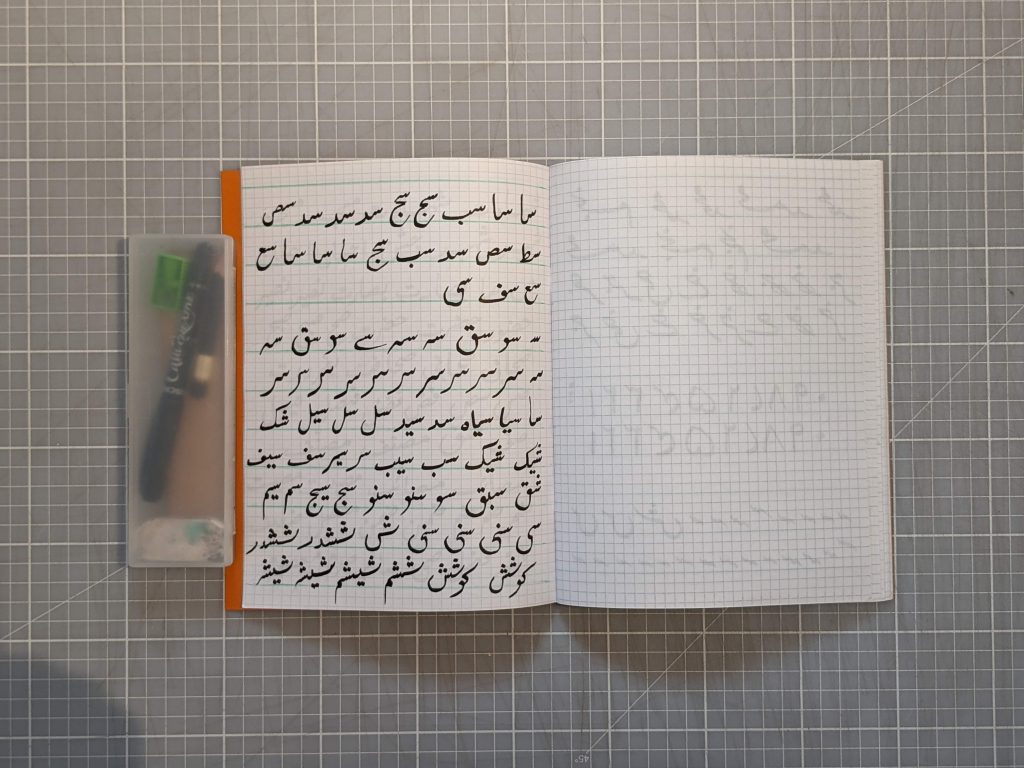 سا سا سب سج سج سد سد سد سص
سط سص سد سب سج سا سا سا سع
سع سف سی
سو سق سه سه سے سو سق سه
سر سر سر سر سر سر سر سر
سا سیا سیاه سد سید سل سل سیل شک
شیک شیک سب سیب سر سیر سف سیف
شق سبق سو سنو سنو سج سیج سم سیم
سی سنی سنی سنی ش ششدر ششدر
کوشش کوشش ششم شیشم شیشه شیشه